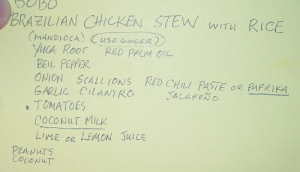 BOBO
BRAZILIAN CHICKEN STEW WITH RICE
(MANDIOCA) (USE GINGER)
YUCA ROOT RED PALM OIL
BELL PEPPER
ONION SCALLIONS RED CHILI PASTE OR PAPRIKA
GARLIC CILANTRO JALAPEÑO
• TOMATOES
COCONUT MILK
LIME OR LEMON JUICE
PEANUTS
COCONUT